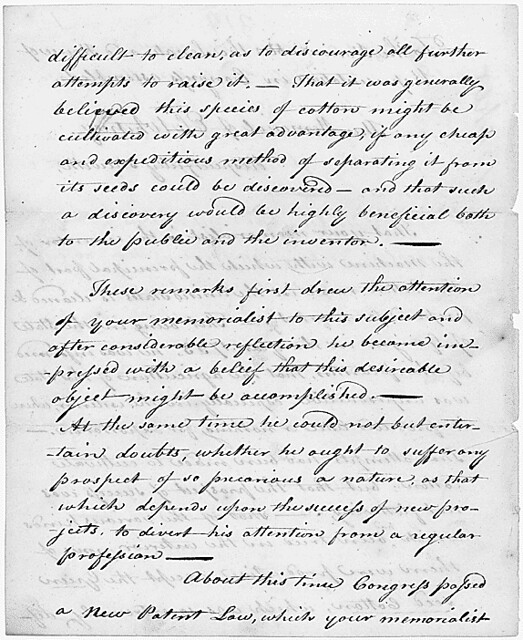 difficult to clean, as to discourage all further
attempts to raise it. — That it was generally
believed this species of cotton might be
cultivated with great advantage, if any cheap
and expeditious method of separating it from
its seeds could be discovered — and that such
a discovery would be highly beneficial both
to the public and the inventor. —
These remarks first drew the attention
of your memorialist to this subject and
after considerable reflection he became im-
pressed with a belief that this desireable
object might be accomplished. —
At the same time he could not but enter-
-tain doubts, whether he ought to suffer any
prospect of so precarious a nature, as that
which depends upon the success of new pro-
-jects, to divert his attention from a regular
profession —
About this time Congress passed
a New Patent Law, which your memorialist